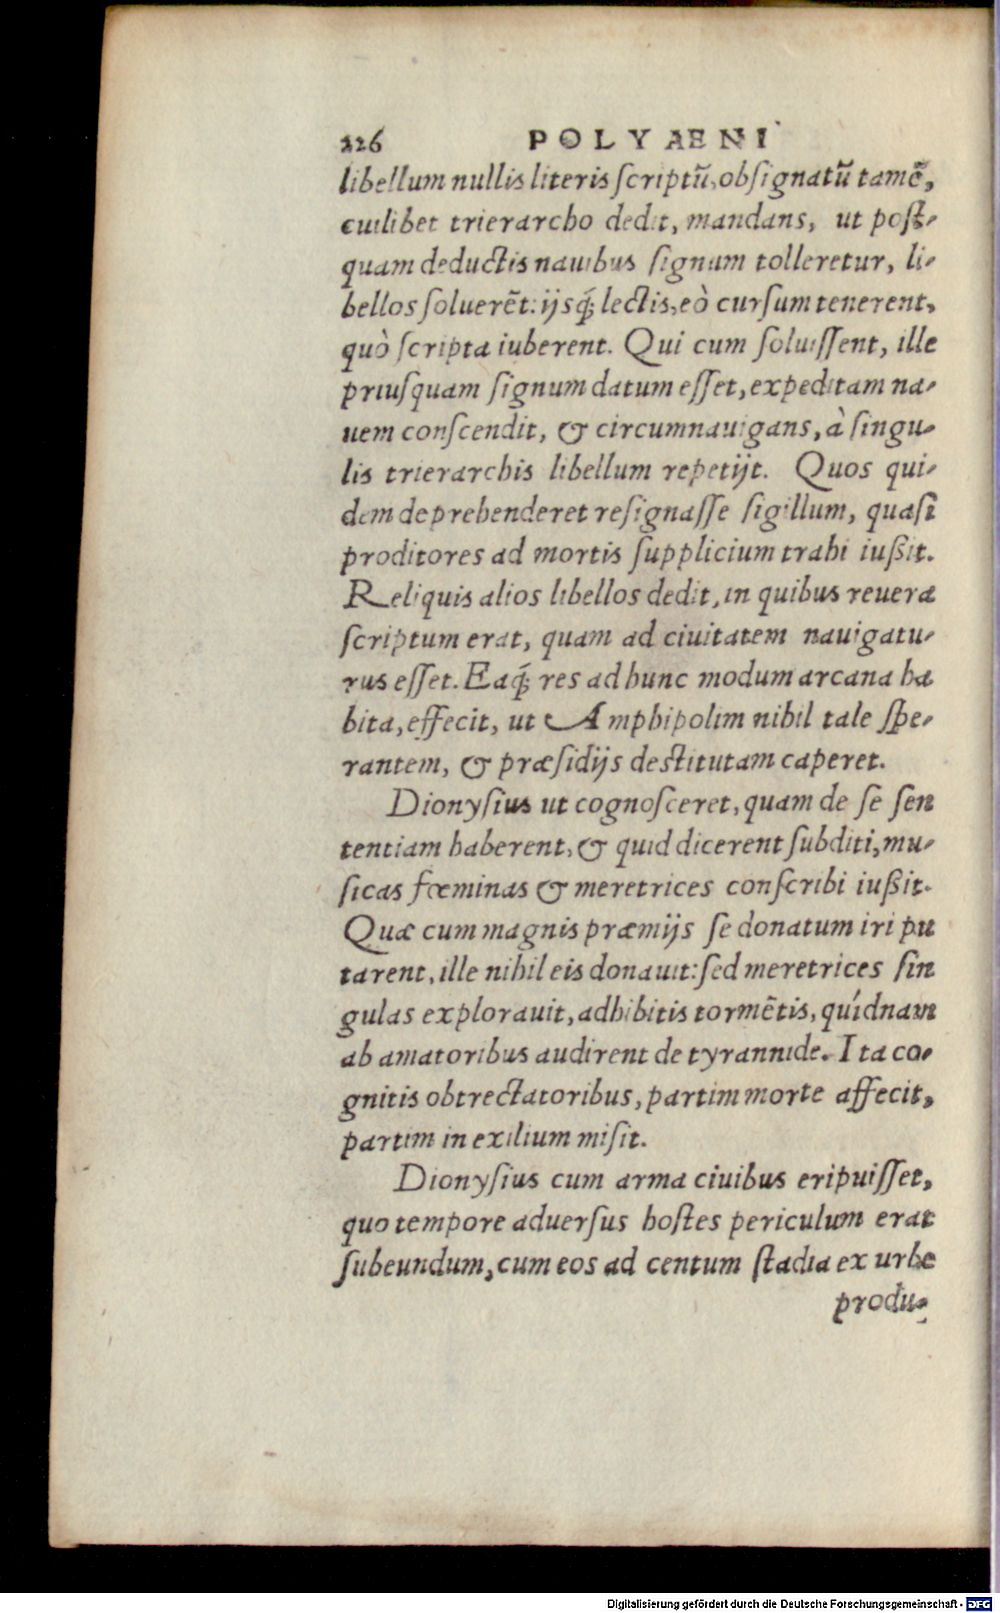 226 POLYAENI
libellum nullis literis ſcriptũ, obſignatũ tamẽ,
cuilibet trierarcho dedit, mandans, ut poſt-
quam deductis nauibus ſignum tolleretur, li-
bellos ſoluerẽt: ijsq́; lectis, eò curſum tenerent,
quò ſcripta iuberent. Qui cum ſoluiſſent, ille
priuſquam ſignum datum eſſet, expeditam na-
uem conſcendit, & circumnauigans, à ſingu-
lis trierarchis libellum repetijt. Quos qui-
dem deprehenderet reſignaſſe ſigillum, quaſi
proditores ad mortis ſupplicium trahi iußit.
Reliquis alios libellos dedit, in quibus reuera
ſcriptum erat, quam ad ciuitatem nauigatu-
rus eſſet. Eaq́; res ad hunc modum arcana ha
bita, effecit, ut Amphipolim nihil tale ſpe-
rantem, & præſidijs deſtitutam caperet.
Dionyſius ut cognoſceret, quam de ſe ſen
tentiam haberent, & quid dicerent ſubditi, mu-
ſicas fœminas & meretrices conſcribi iußit.
Quæ cum magnis præmijs ſe donatum iri pu
tarent, ille nihil eis donauit: ſed meretrices ſin
gulas explorauit, adhibitis tormẽtis, quídnam
ab amatoribus audirent de tyrannide. Ita co-
gnitis obtrectatoribus, partim morte affecit,
partim in exilium miſit.
Dionyſius cum arma ciuibus eripuiſſet,
quo tempore aduerſus hoſtes periculum erat
ſubeundum, cum eos ad centum ſtadia ex urbe
produ-
Digitalisierung gefördert durch die Deutsche Forschungsgemeinschaft - DFG